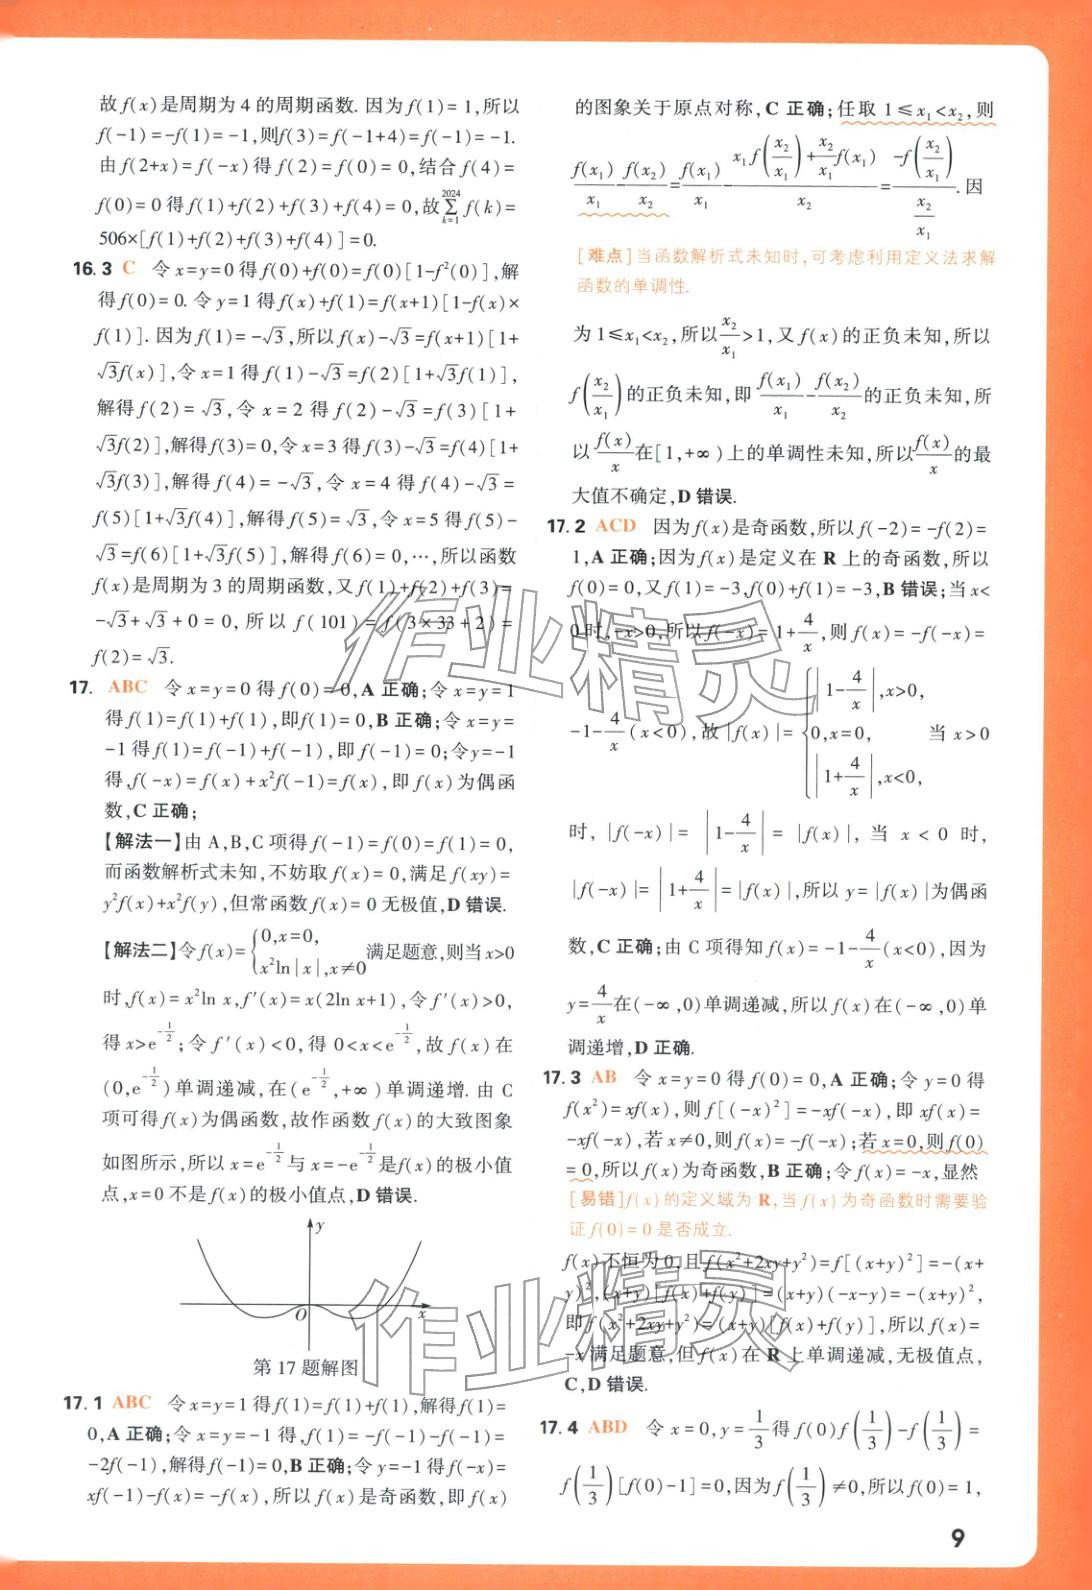 故f(x)是周期为4的周期函数. 因为f(1)=1,所以
f(-1)=-f(1)=-1,则f(3)=f(-1+4)=f(-1)=-1.
由f(2+x)=f(-x)得f(2)=f(0)=0,结合f(4)=
f(0)=0得f(1)+f(2)+f(3)+f(4)=0,故∑_{k=1}^{2024} f(k)=
506×[f(1)+f(2)+f(3)+f(4)]=0.
16.3 C 令x=y=0得f(0)+f(0)=f(0)[1-f²(0)],解
得f(0)=0. 令y=1得f(x)+f(1)=f(x+1)[1-f(x)×
f(1)]. 因为f(1)=-√3,所以f(x)-√3=f(x+1)[1+
√3f(x)],令x=1得f(1)-√3=f(2)[1+√3f(1)],
解得f(2)=√3,令x=2得f(2)-√3=f(3)[1+
√3f(2)],解得f(3)=0,令x=3得f(3)-√3=f(4)[1+
√3f(3)],解得f(4)=-√3,令x=4得f(4)-√3=
f(5)[1+√3f(4)],解得f(5)=√3,令x=5得f(5)-
√3=f(6)[1+√3f(5)],解得f(6)=0,…,所以函数
f(x)是周期为3的周期函数,又f(1)+f(2)+f(3)=
-√3+√3+0=0,所以f(101)=f(3×33+2)=
f(2)=√3.
17. ABC 令x=y=0得f(0)=0,A正确;令x=y=1
得f(1)=f(1)+f(1),即f(1)=0,B正确;令x=y=
-1得f(1)=f(-1)+f(-1),即f(-1)=0;令y=-1
得,f(-x)=f(x)+x²f(-1)=f(x),即f(x)为偶函
数,C正确;
【解法一】由A,B,C项得f(-1)=f(0)=f(1)=0,
而函数解析式未知,不妨取f(x)=0,满足f(xy)=
y²f(x)+x²f(y),但常函数f(x)=0无极值,D错误.
【解法二】令f(x)={0,x=0, x²ln|x|,x≠0 满足题意,则当x>0
时,f(x)=x²ln x,f′(x)=x(2ln x+1),令f′(x)>0,
得x>e^{-1/2};令f′(x)<0,得0<x<e^{-1/2},故f(x)在
(0,e^{-1/2})单调递减,在(e^{-1/2},+∞)单调递增. 由C
项可得f(x)为偶函数,故作函数f(x)的大致图象
如图所示,所以x=e^{-1/2}与x=-e^{-1/2}是f(x)的极小值
点,x=0不是f(x)的极小值点,D错误.
y
O
x
第17题解图
17.1 ABC 令x=y=1得f(1)=f(1)+f(1),解得f(1)=
0,A正确;令x=y=-1得,f(1)=-f(-1)-f(-1)=
-2f(-1),解得f(-1)=0,B正确;令y=-1得f(-x)=
xf(-1)-f(x)=-f(x),所以f(x)是奇函数,即f(x)
的图象关于原点对称,C正确;任取1≤x₁<x₂,则
f(x₁)/x₁-f(x₂)/x₂=f(x₁)/x₁-[x₁f(x₂/x₁)+(x₂/x₁)f(x₁)]/x₂=-f(x₂/x₁)/(x₂/x₁). 因
[难点]当函数解析式未知时,可考虑利用定义法求解
函数的单调性.
为1≤x₁<x₂,所以x₂/x₁>1,又f(x)的正负未知,所以
f(x₂/x₁)的正负未知,即f(x₁)/x₁-f(x₂)/x₂的正负未知,所
以f(x)/x在[1,+∞)上的单调性未知,所以f(x)/x的最
大值不确定,D错误.
17.2 ACD 因为f(x)是奇函数,所以f(-2)=-f(2)=
1,A正确;因为f(x)是定义在R上的奇函数,所以
f(0)=0,又f(1)=-3,f(0)+f(1)=-3,B错误;当x<
0时,-x>0,所以f(-x)=1+4/x,则f(x)=-f(-x)=
-1-4/x(x<0),故|f(x)|={|1-4/x|,x>0, 0,x=0, |1+4/x|,x<0, 当x>0
时,|f(-x)|=|1-4/x|=|f(x)|,当x<0时,
|f(-x)|=|1+4/x|=|f(x)|,所以y=|f(x)|为偶函
数,C正确;由C项得知f(x)=-1-4/x(x<0),因为
y=4/x在(-∞,0)单调递减,所以f(x)在(-∞,0)单
调递增,D正确.
17.3 AB 令x=y=0得f(0)=0,A正确;令y=0得
f(x²)=xf(x),则f[(-x)²]=-xf(-x),即xf(x)=
-xf(-x),若x≠0,则f(x)=-f(-x);若x=0,则f(0)
=0,所以f(x)为奇函数,B正确;令f(x)=-x,显然
[易错]f(x)的定义域为R,当f(x)为奇函数时需要验
证f(0)=0是否成立.
f(x)不恒为0,且f(x²+2xy+y²)=f[(x+y)²]=-(x+
y)²,(x+y)[f(x)+f(y)]=(x+y)(-x-y)=-(x+y)²,
即f(x²+2xy+y²)=(x+y)[f(x)+f(y)],所以f(x)=
-x满足题意,但f(x)在R上单调递减,无极值点,
C,D错误.
17.4 ABD 令x=0,y=1/3得f(0)f(1/3)-f(1/3)=
f(1/3)[f(0)-1]=0,因为f(1/3)≠0,所以f(0)=1,
9
作业精灵
作业精灵